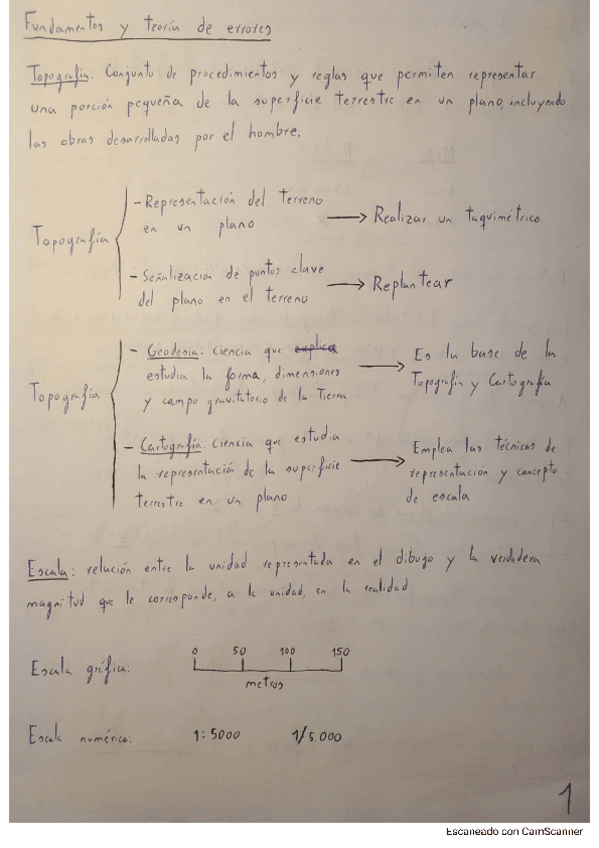 Fundamentos y teoría de errores
Topografía: Conjunto de procedimientos y reglas que permiten representar
una porción pequeña de la superficie terrestre en un plano, incluyendo
las obras desarrolladas por el hombre.
Topografía
- Representación del terreno
en un plano
→ Realizar un taquimétrico
- Señalización de puntos clave
del plano en el terreno
→ Replantear
Topografía
- Geodesia: ciencia que explica
estudia la forma, dimensiones
y campo gravitatorio de la Tierra
→ Es la base de la
Topografía y Cartografía
- Cartografía: ciencia que estudia
la representación de la superficie
terrestre en un plano
→ Emplea las técnicas de
representación y concepto
de escala
Escala: relación entre la unidad representada en el dibujo y la verdadera
magnitud que le corresponde, a la unidad, en la realidad
Escala gráfica:
0 50 100 150
metros
Escala numérica: 1:5000 1/5.000
1
Escaneado con CamScanner